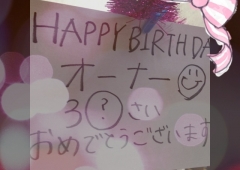 HAPPY BIRTHDA
オーナー
3?さい
おめでとうございます